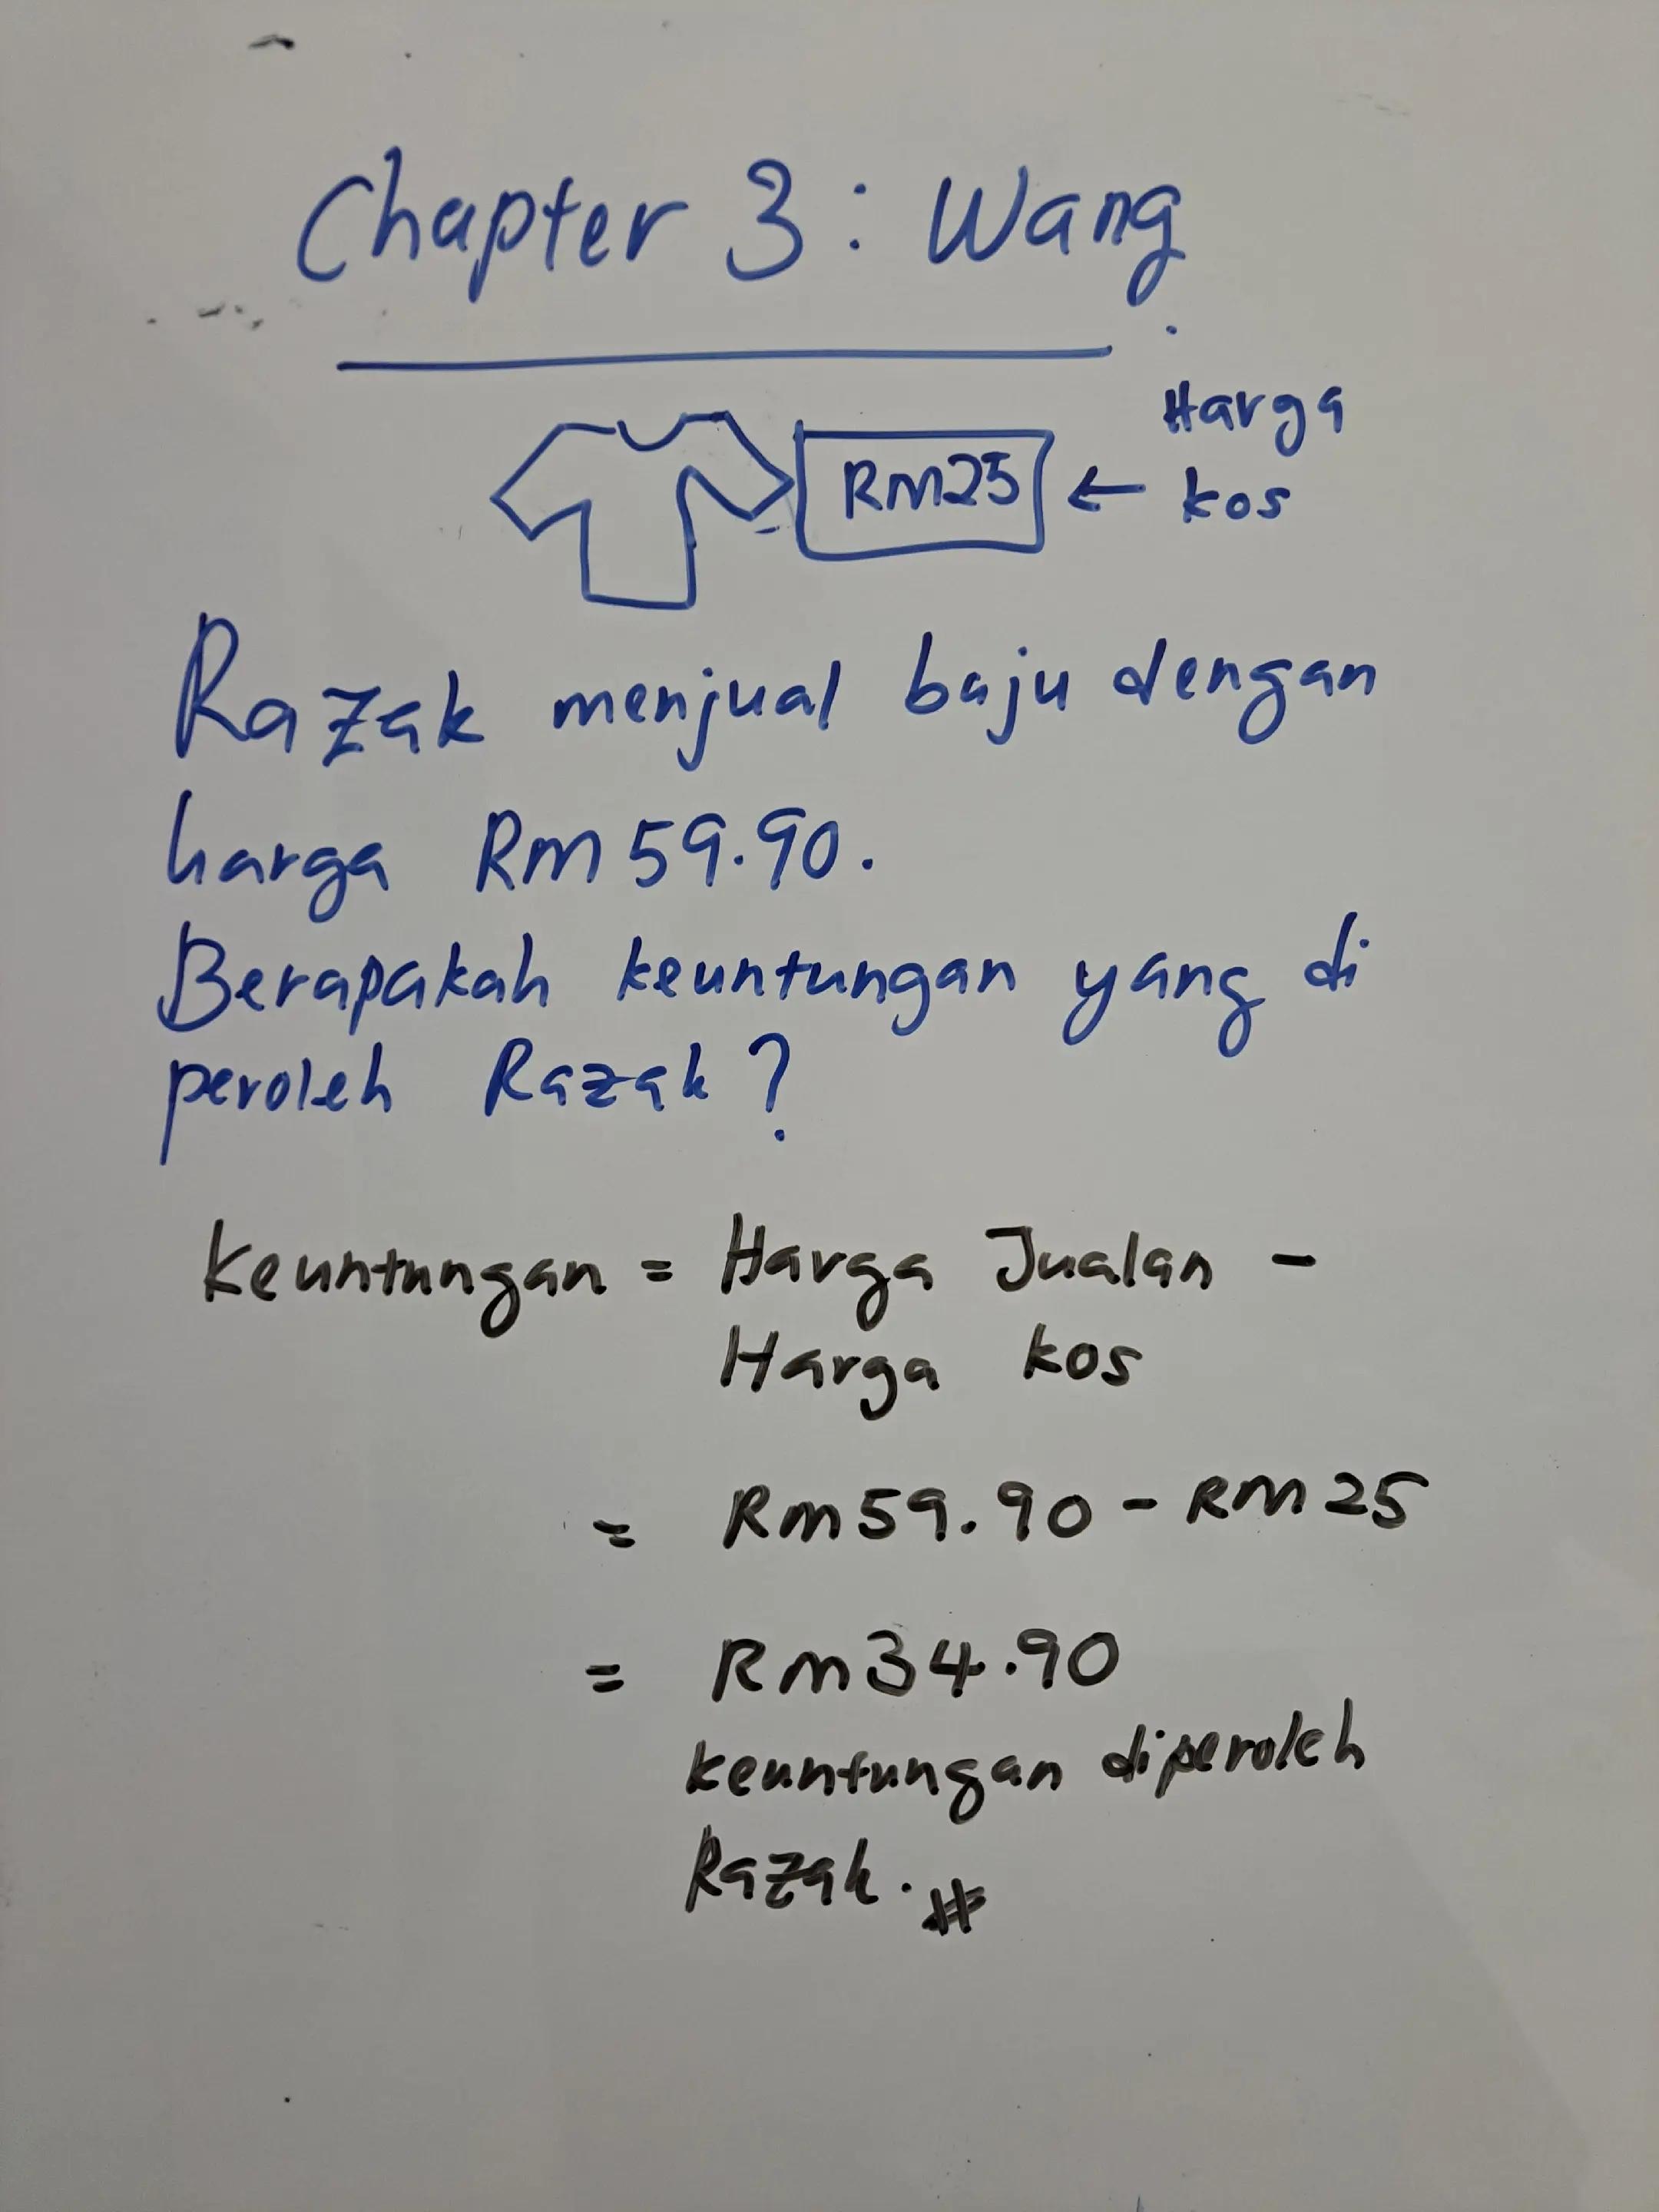 Chapter 3 : Wang
Harga
RM25 ← kos
Razak menjual baju dengan
harga RM 59.90.
Berapakah keuntungan yang di
peroleh Razak?
Keuntungan = Harga Jualan -
Harga kos
= RM59.90 - RM25
= RM34.90
keuntungan diperoleh
Razak. #